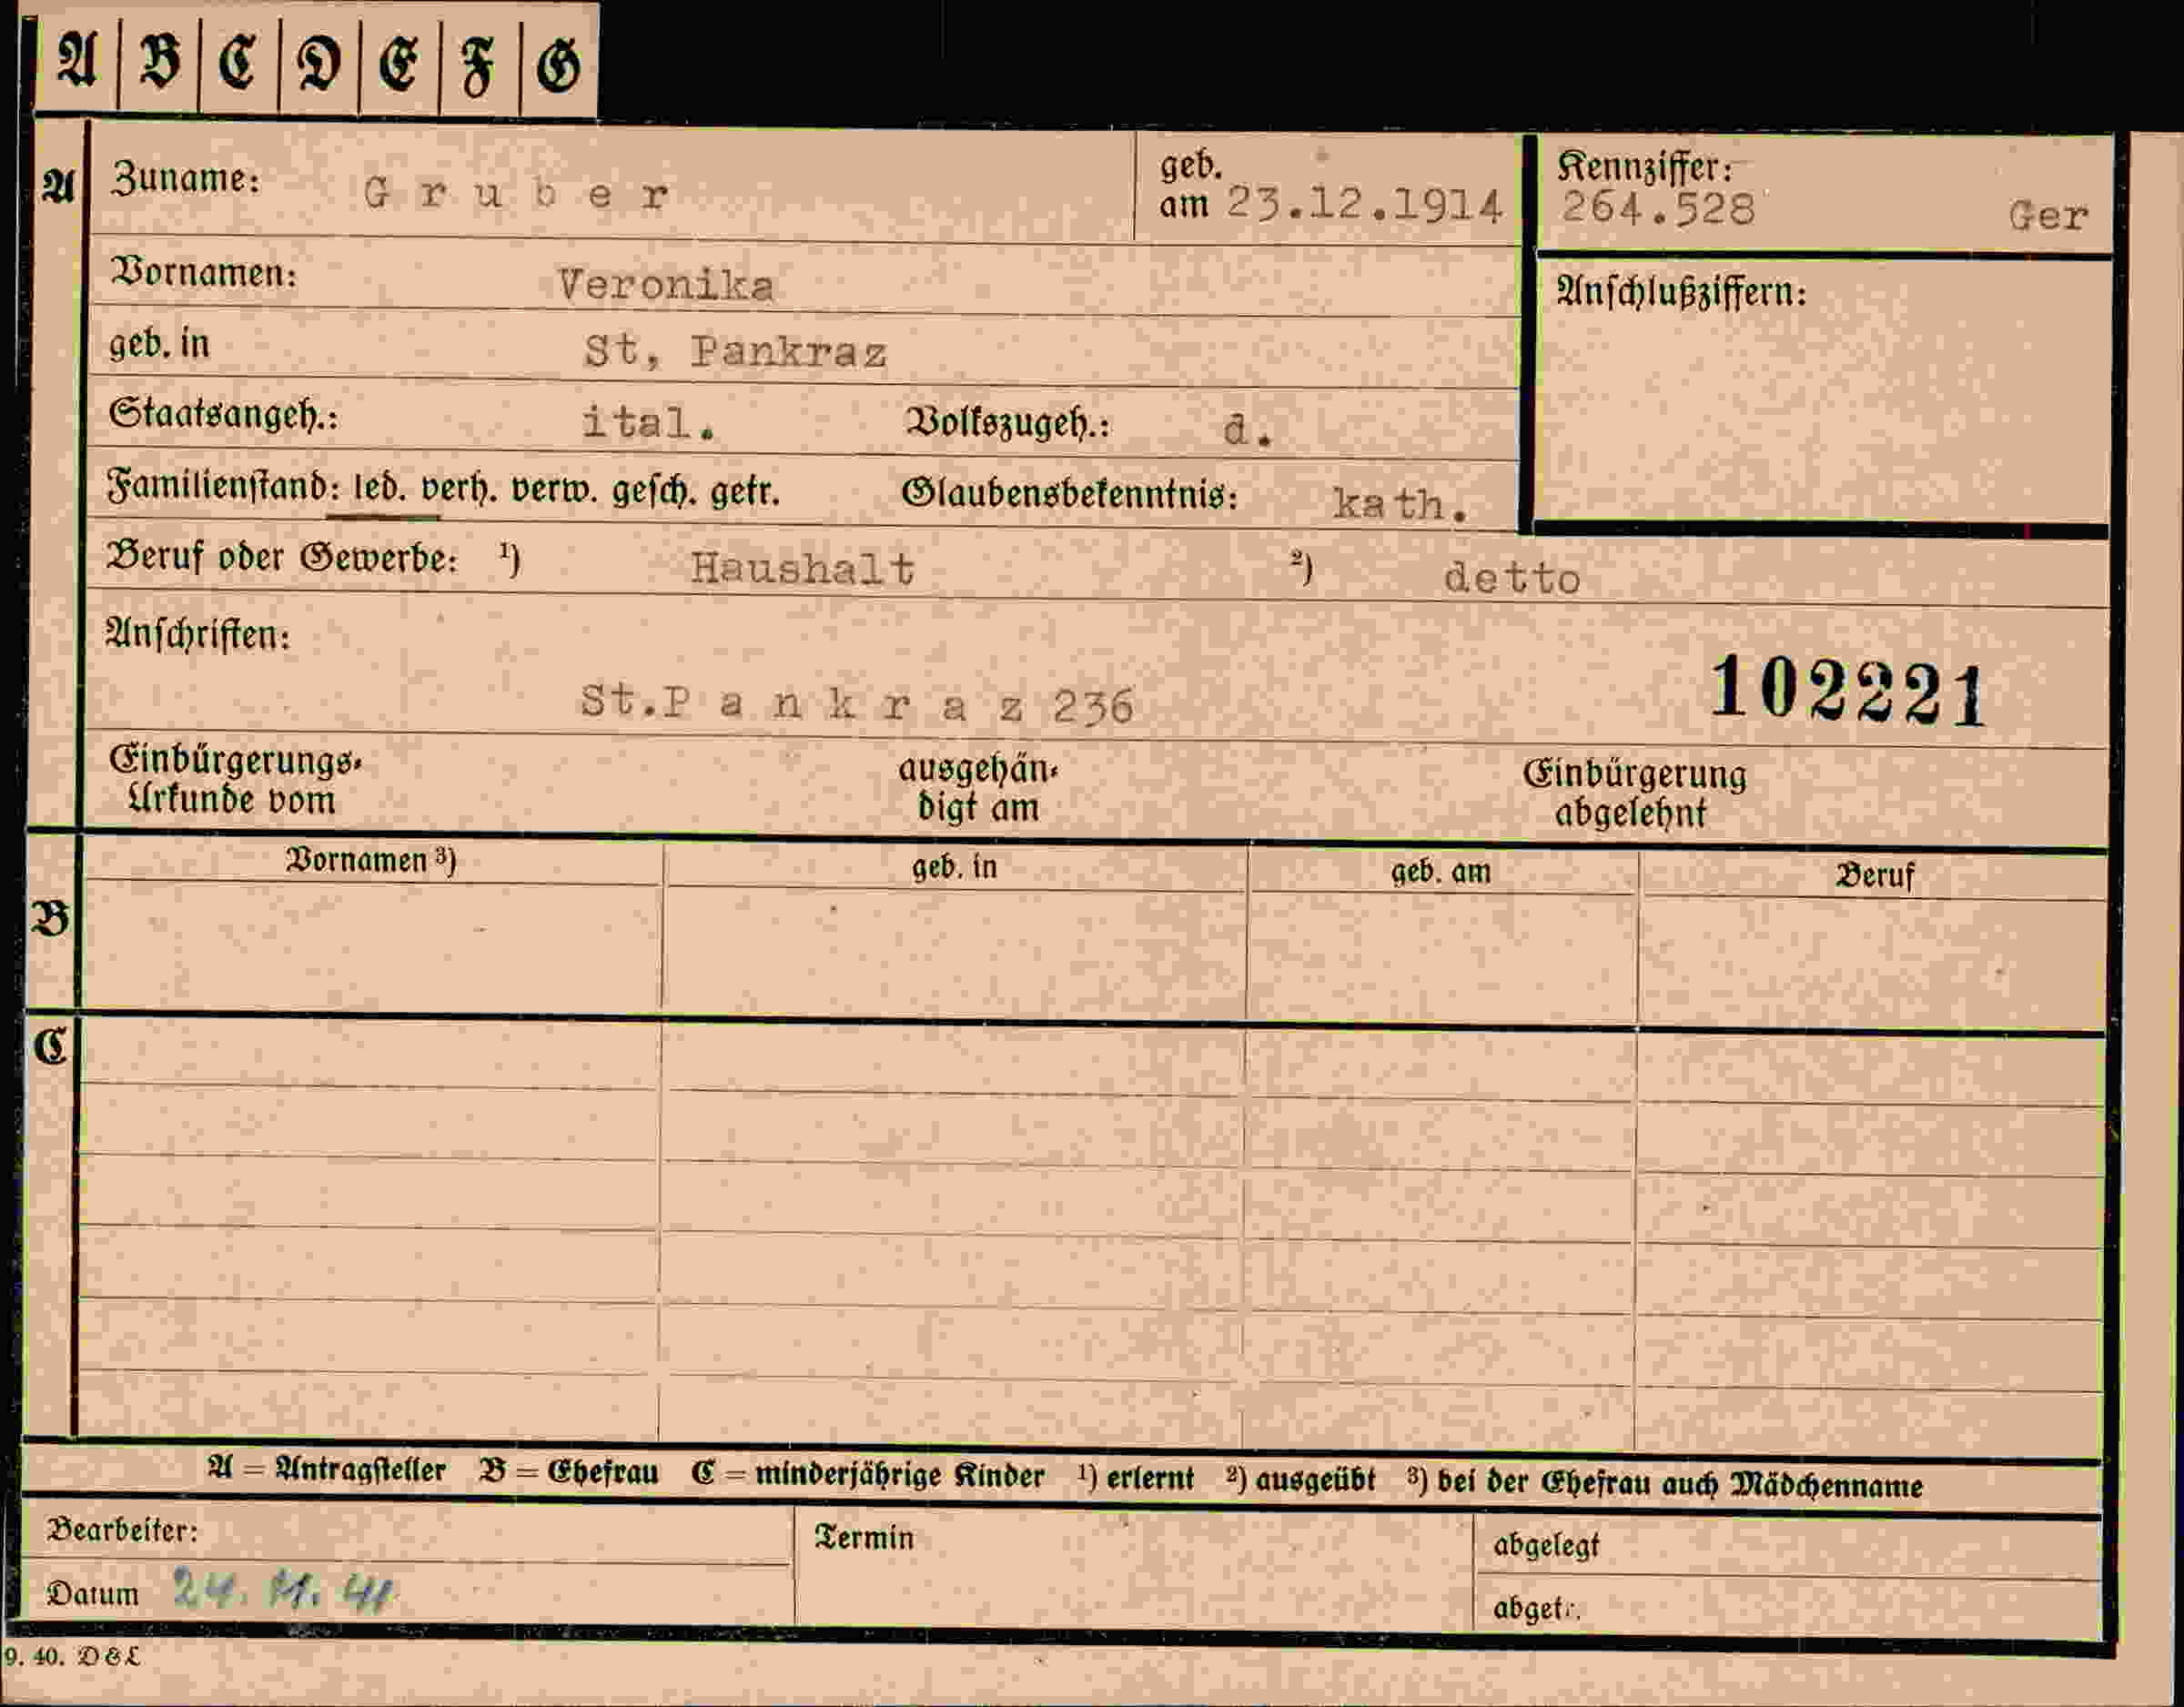 A B C D E F G
A Zuname: Gruber geb. am 23.12.1914 Kennziffer: 264.528 Ger
Vornamen: Veronika Anschlußziffern:
geb. in St, Pankraz
Staatsangeh.: ital. Volkszugeh.: d.
Familienstand: led. verh. verw. gesch. getr. Glaubensbekenntnis: kath.
Beruf oder Gewerbe: ¹) Haushalt ²) detto
Anschriften:
St.Pankraz 236 102221
Einbürgerungs- ausgehän- Einbürgerung
Urkunde vom digt am abgelehnt
Vornamen ³) geb. in geb. am Beruf
B
C
A = Antragsteller B = Ehefrau C = minderjährige Kinder ¹) erlernt ²) ausgeübt ³) bei der Ehefrau auch Mädchenname
Bearbeiter: Termin abgelegt
Datum 24. 11. 41 abgetr.
9. 40. D & L